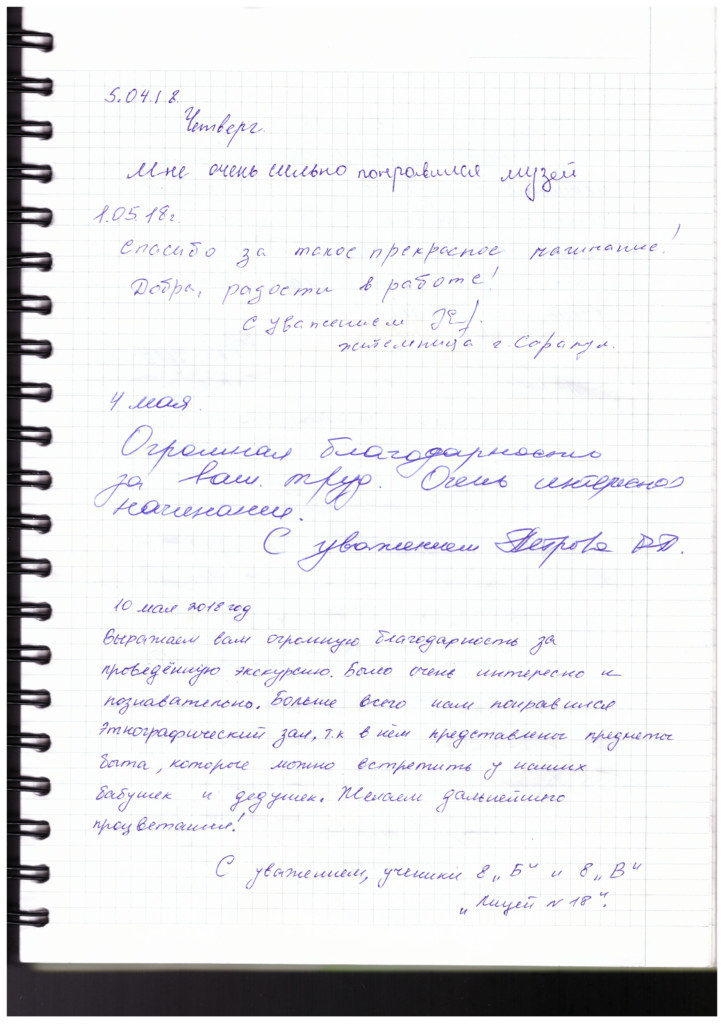 5.04.18
Четверг.
Мне очень сильно понравился музей
1.05.18г.
Спасибо за такое прекрасное начинание!
Добра, радости в работе!
С уважением
жительница г. Сарапул.
4 мая.
Огромная благодарность
за ваш труд. Очень интересное
начинание.
С уважением Петрова
10 мая 2018 год
Выражаем вам огромную благодарность за
проведённую экскурсию. Было очень интересно и
познавательно. Больше всего нам понравился
Этнографический зал, т.к в нём представлены предметы
быта, которые можно встретить у наших
бабушек и дедушек. Желаем дальнейшего
процветания!
С уважением, ученики 8 „Б“ и 8 „В“
„Лицей №18“.